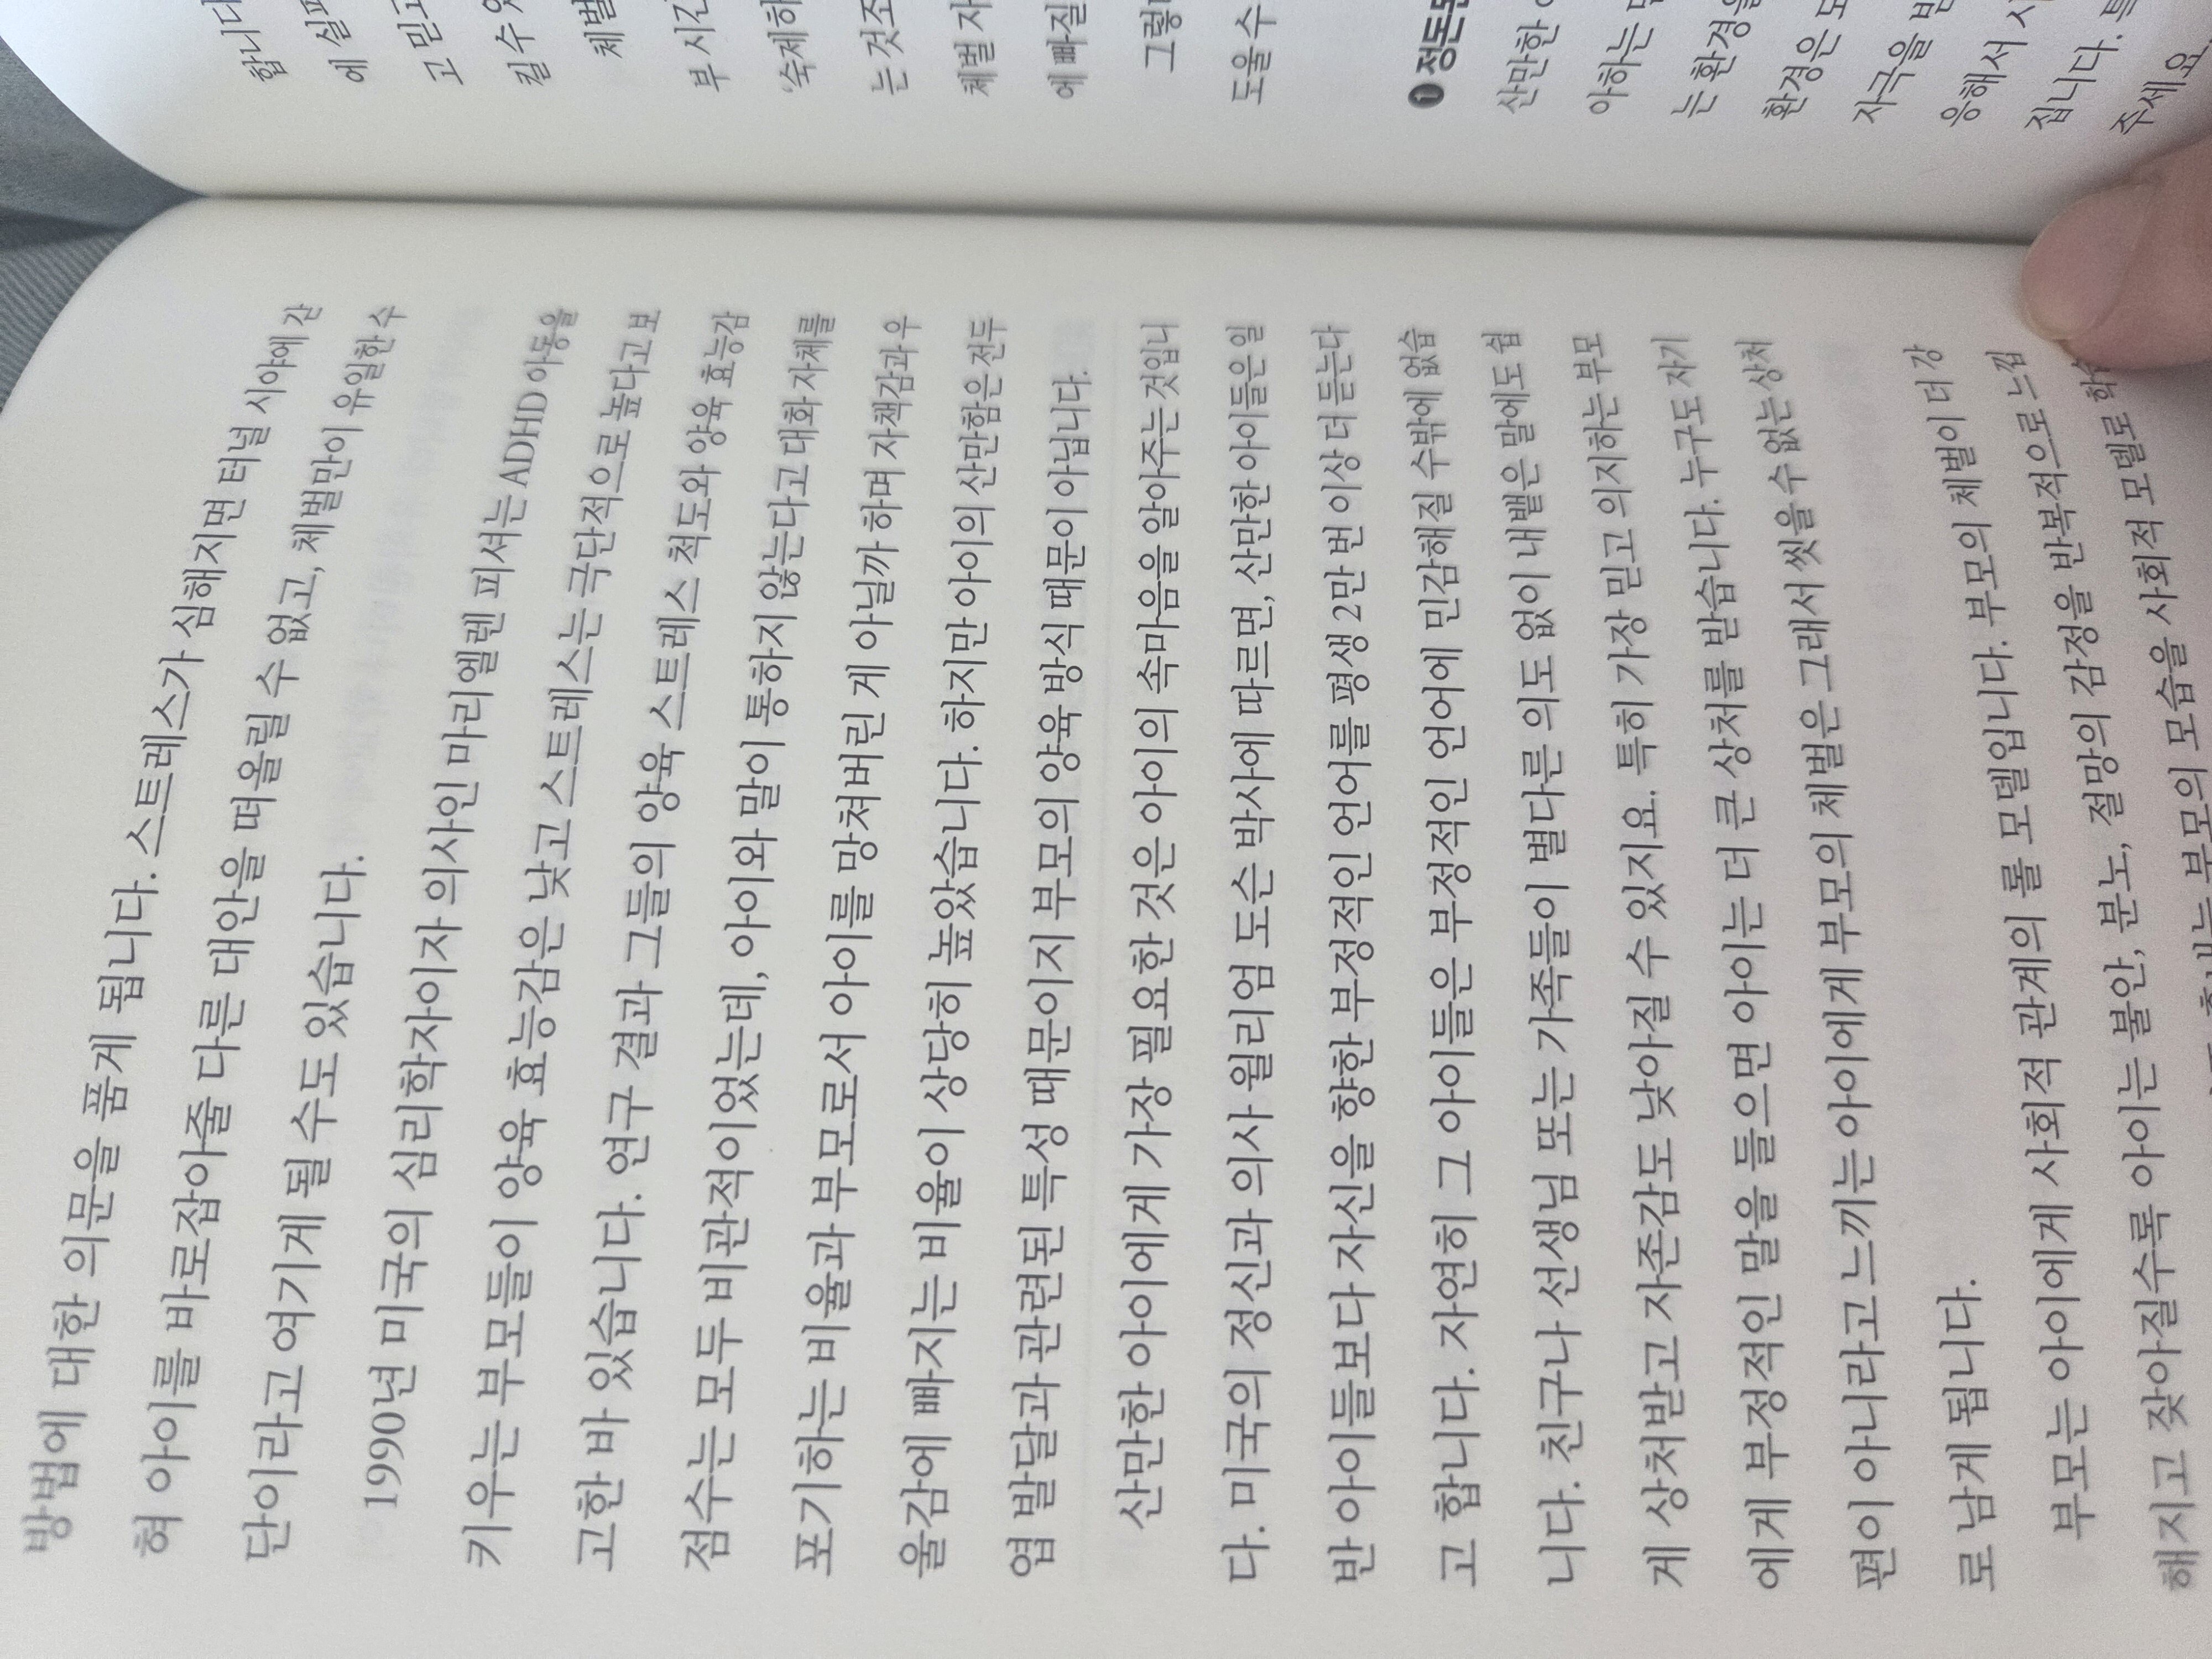 방법에 대한 의문을 품게 됩니다. 스트레스가 심해지면 터널 시야에 갇
혀 아이를 바로잡아줄 다른 대안을 떠올릴 수 없고, 체벌만이 유일한 수
단이라고 여기게 될 수도 있습니다.
1990년 미국의 심리학자이자 의사인 마리엘렌 피셔는 ADHD 아동을
키우는 부모들이 양육 효능감은 낮고 스트레스는 극단적으로 높다고 보
고한 바 있습니다. 연구 결과 그들의 양육 스트레스 척도와 양육 효능감
점수는 모두 비관적이었는데, 아이와 말이 통하지 않는다고 대화 자체를
포기하는 비율과 부모로서 아이를 망쳐버린 게 아닐까 하며 자책감과 우
울감에 빠지는 비율이 상당히 높았습니다. 하지만 아이의 산만함은 전두
엽 발달과 관련된 특성 때문이지 부모의 양육 방식 때문이 아닙니다.
산만한 아이에게 가장 필요한 것은 아이의 속마음을 알아주는 것입니
다. 미국의 정신과 의사 윌리엄 도슨 박사에 따르면, 산만한 아이들은 일
반 아이들보다 자신을 향한 부정적인 언어를 평생 2만 번 이상 더 듣는다
고 합니다. 자연히 그 아이들은 부정적인 언어에 민감해질 수밖에 없습
니다. 친구나 선생님 또는 가족들이 별다른 의도 없이 내뱉은 말에도 쉽
게 상처받고 자존감도 낮아질 수 있지요. 특히 가장 믿고 의지하는 부모
에게 부정적인 말을 들으면 아이는 더 큰 상처를 받습니다. 누구도 자기
편이 아니라고 느끼는 아이에게 부모의 체벌은 그래서 씻을 수 없는 상처
로 남게 됩니다.
부모는 아이에게 사회적 관계의 롤 모델입니다. 부모의 체벌이 더 강
해지고 잦아질수록 아이는 불안, 분노, 절망의 감정을 반복적으로 느낍
부모의 모습을 사회적 모델로
합니다
에
고 믿고
킬 수
체벌
부 시간
'숙제하
는 것조
체벌 자
에 빠질
그렇
도울 수
❶ 정돈된
산만한
아하는
는 환경을
환경은
자극을
응해서
집니다.
주세요